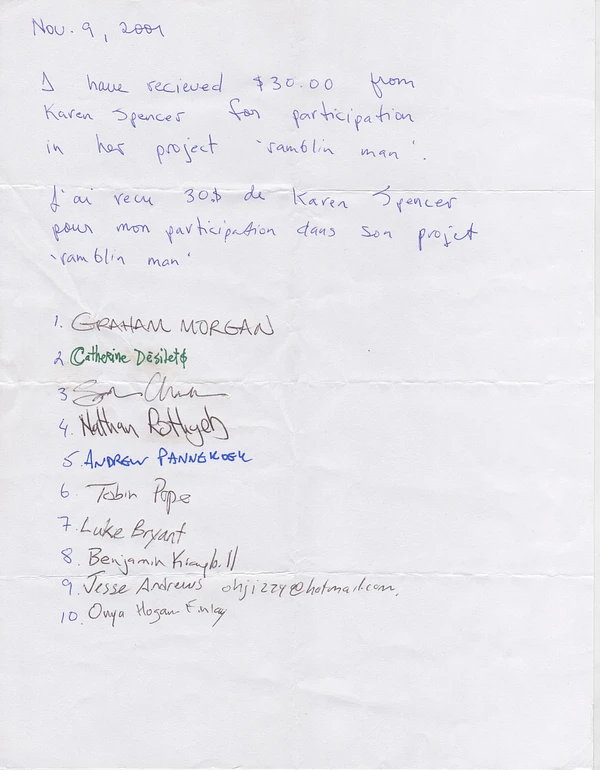 Nov. 9, 2001
I have recieved $30.00 from
Karen Spencer for participation
in her project 'ramblin man'.
J'ai recu 30$ de Karen Spencer
pour mon participation dans son projet
'ramblin man'
1. GRAHAM MORGAN
2 Catherine Désilets
3
4. Nathan
5. ANDREW PANNEKOEK
6 Tobin Pope
7. Luke Bryant
8. Benjamin Kraybill
9. Jesse Andrews ohjizzy@hotmail.com,
10. Onya Hogan Finlay